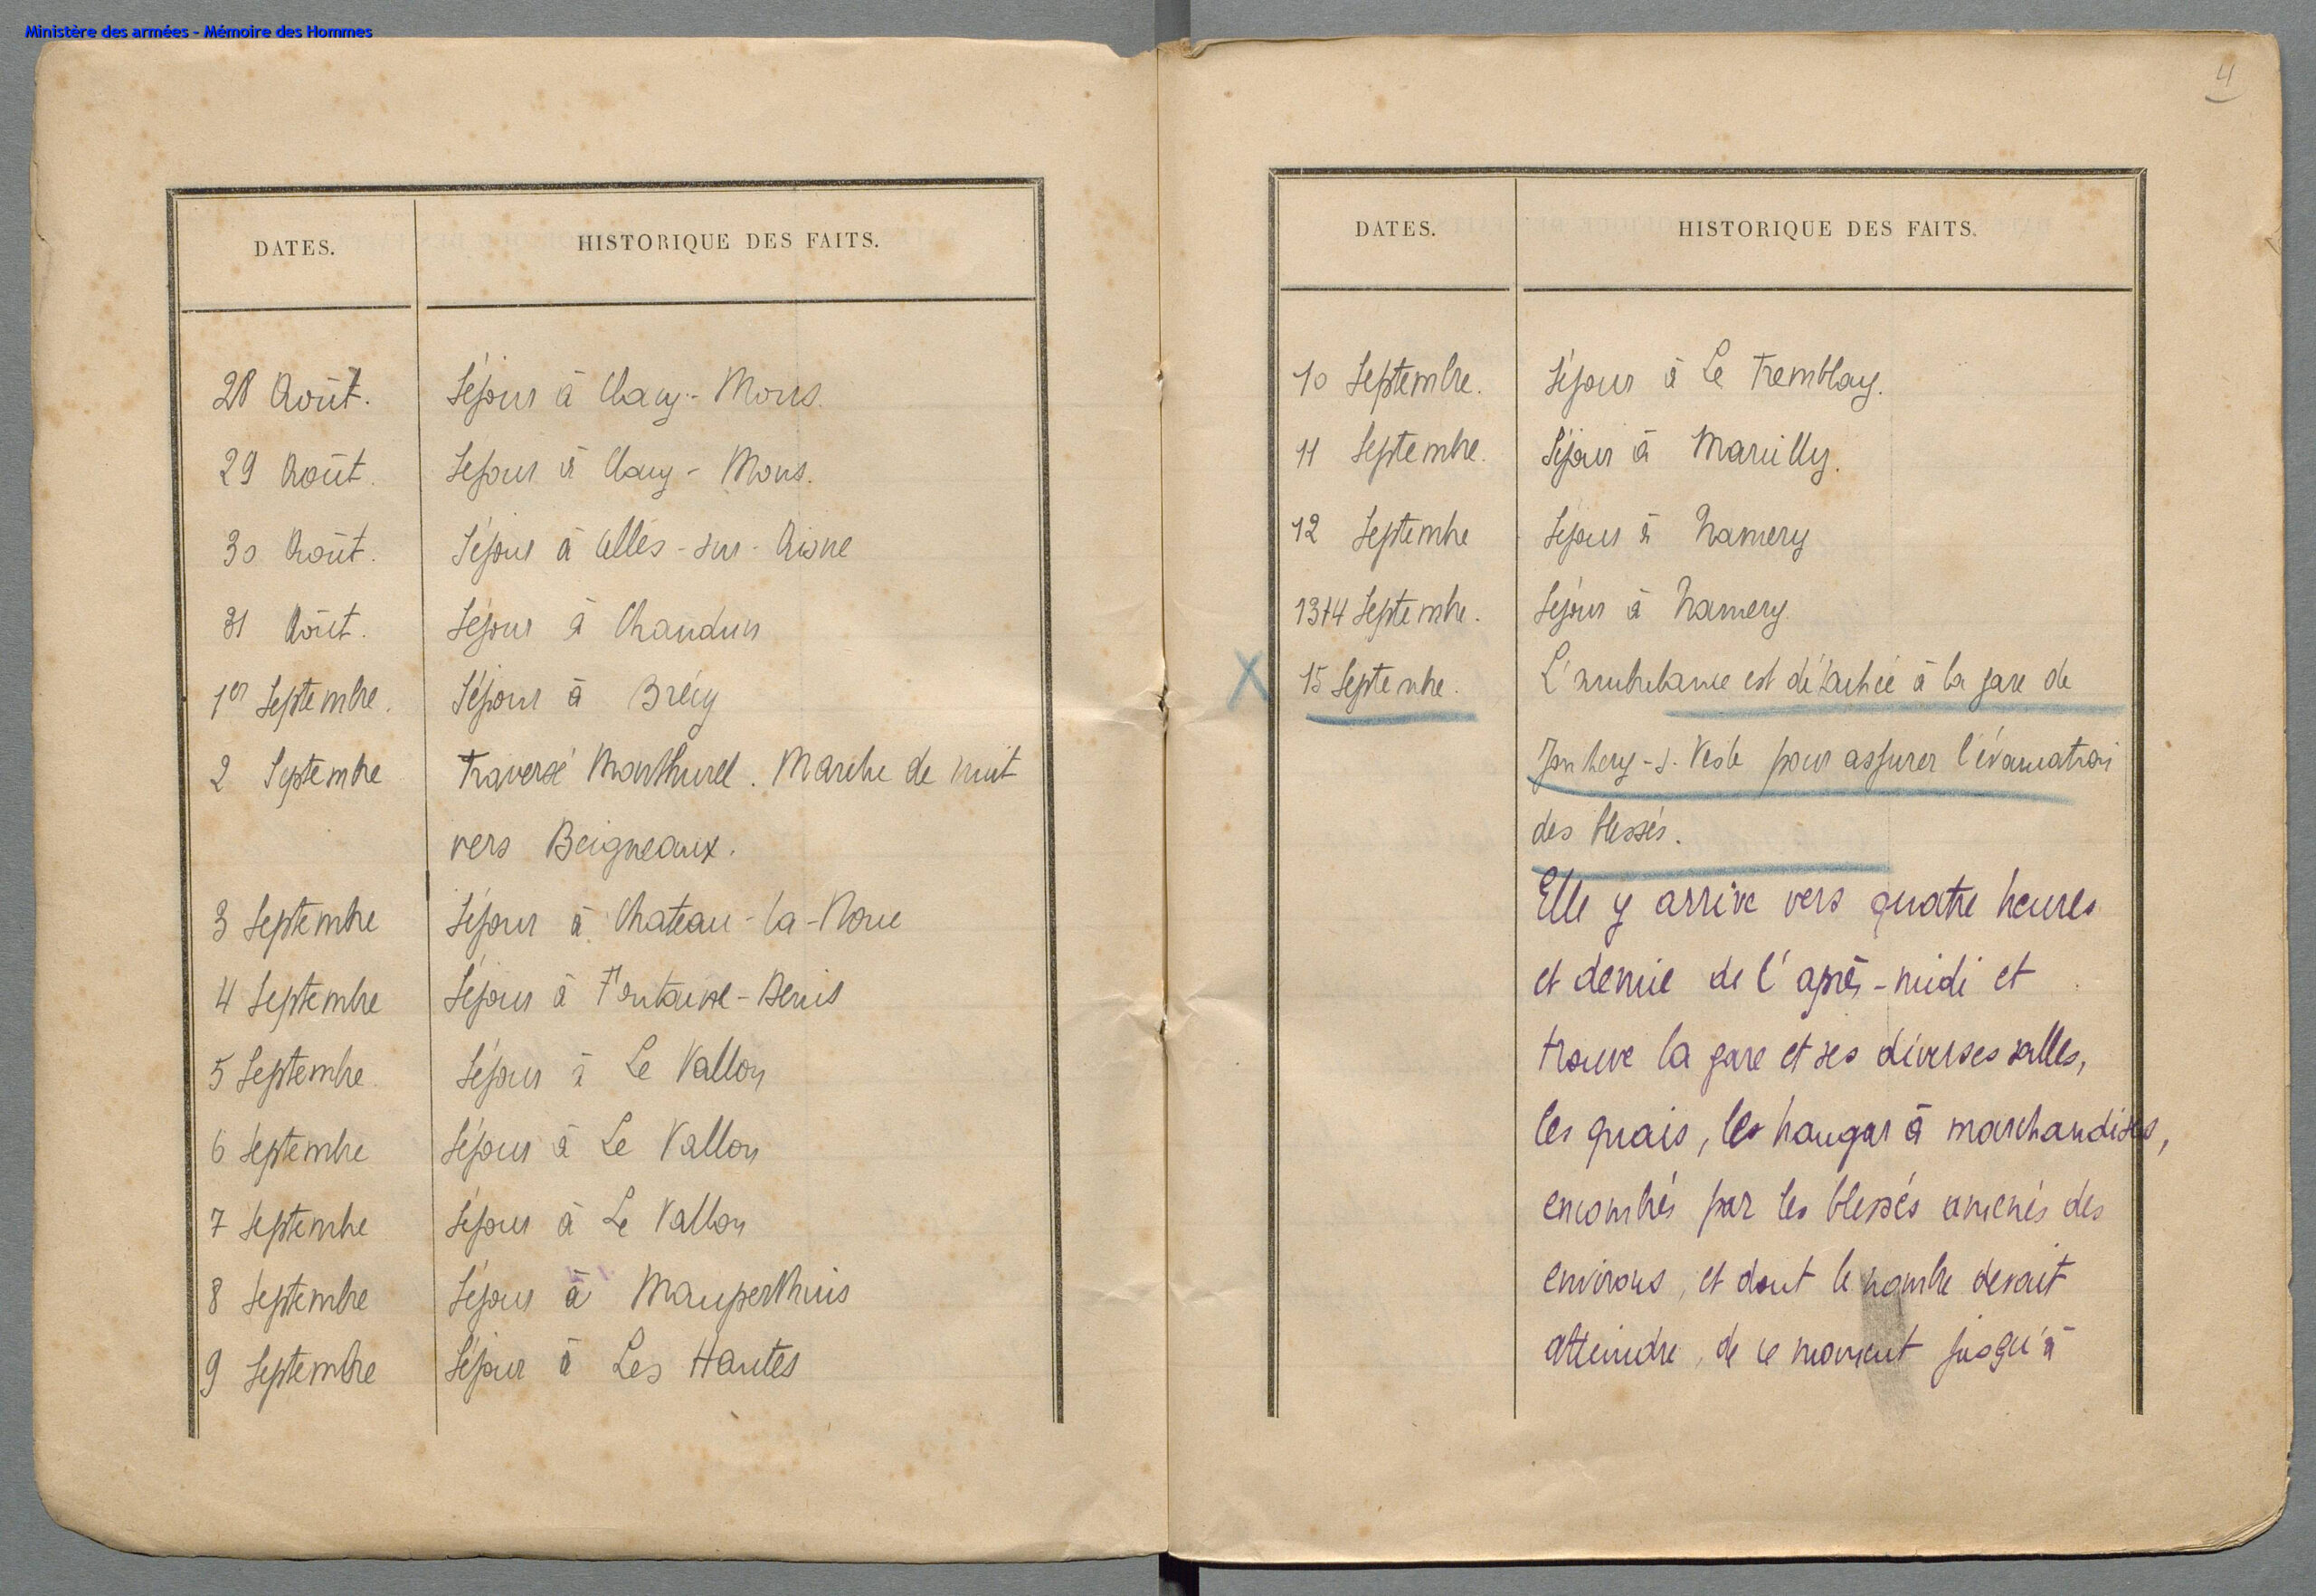 Ministère des armées - Mémoire des Hommes
DATES.
HISTORIQUE DES FAITS.
28 Août. Séjour à Clacy-Mons.
29 Août. Séjour à Clacy-Mons.
30 Août. Séjour à Celles-sur-Aisne
31 Août. Séjour à Chaudun
1er Septembre. Séjour à Brécy
2 Septembre Traversé Monthurel. Marche de nuit
vers Beigneaux.
3 Septembre Séjour à Chateau-la-Noue
4 Septembre Séjour à Fontaine-Denis
5 Septembre Séjour à Le Vallon
6 Septembre Séjour à Le Vallon
7 Septembre Séjour à Le Vallon
8 Septembre Séjour à Mauperthuis
9 Septembre Séjour à Les Hautes
4
DATES.
HISTORIQUE DES FAITS.
10 Septembre. Séjour à Le Tremblay.
11 Septembre. Séjour à Marcilly.
12 Septembre Séjour à Namery
13+14 Septembre. Séjour à Namery
X 15 Septembre. L'ambulance est détachée à la gare de
Jonchery-s-Vesle pour assurer l'évacuation
des blessés.
Elle y arrive vers quatre heures
et demie de l'après-midi et
trouve la gare et ses diverses salles,
les quais, les hangar à marchandises,
encombrés par les blessés amenés des
environs, et dont le nombre devait
atteindre, de ce moment jusqu'à